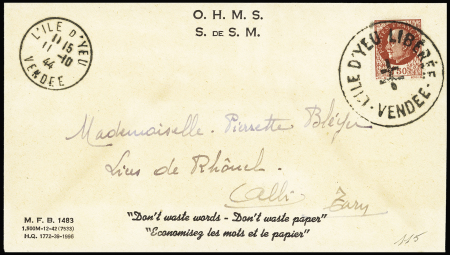 O. H. M. S.
S. DE S. M.
L'ILE D'YEU
11 15
11 -10
44
VENDÉE
L'ILE D'YEU LIBÉRÉE
VENDÉE
Mademoiselle Pierrette
de
Albi Tarn
M. F. B. 1483
1,500M-12-42 (7533)
H.Q. 1772-39-1996
"Don't waste words - Don't waste paper"
"Economisez les mots et le papier"
115